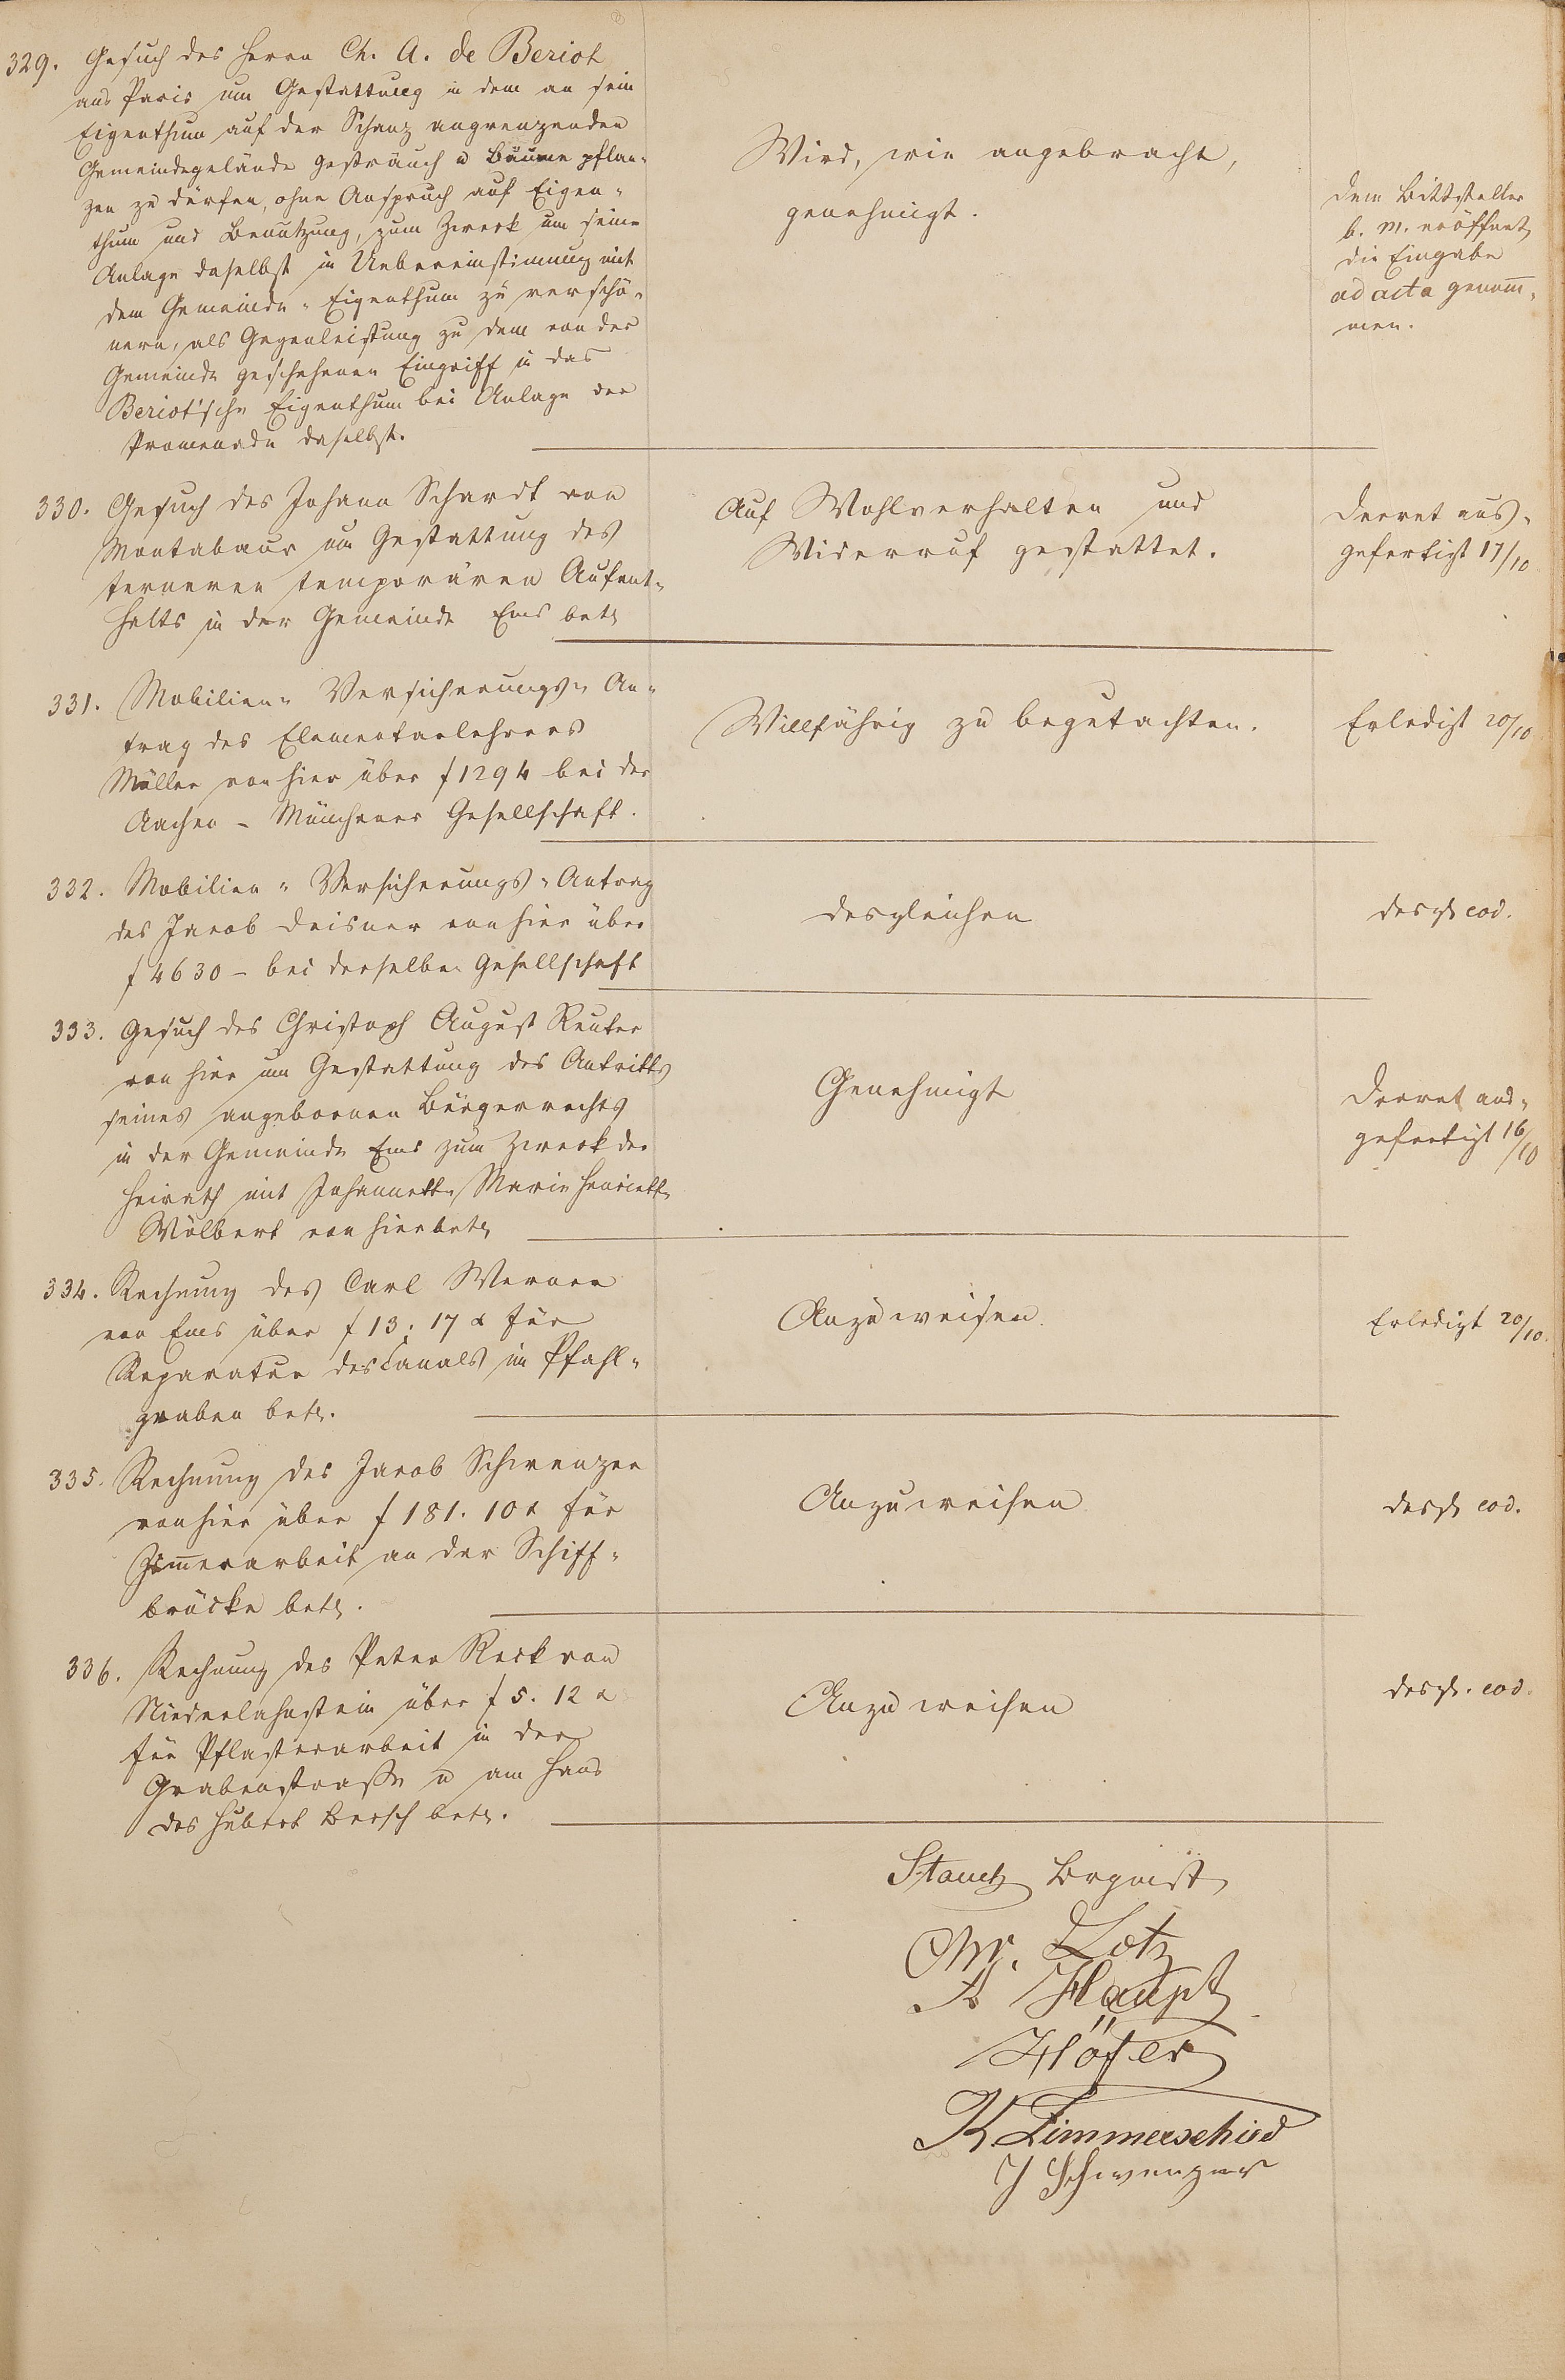 329. Gesuch des Herrn Ch. A. de Beriot
aus Paris um Gestattung in dem an sein
Eigenthum auf der Schanz angrenzenden
Gemeindegelände Gesträuch u Bäume pflan-
zen zu dürfen, ohne Anspruch auf Eigen-
thum und Benutzung, zum Zweck um seine
Anlage daselbst in Uebereinstimmung mit
dem Gemeinde-Eigenthum zu verschö-
nern, als Gegenleistung zu dem von der
Gemeinde geschehenen Eingriff in das
Beriot'sche Eigenthum bei Anlage der
Promenade daselbst.
Wird, wie angebracht,
genehmigt.
Dem Bittsteller
b. m. eröffnet
die Eingabe
ad acta genom̅-
men.
330. Gesuch des Johann Schardt von
Montabaur um Gestattung des
ferneren temporären Aufent-
halts in der Gemeinde Ems betr
Auf Wohlverhalten und
Widerruf gestattet.
Decret aus-
gefertigt 17/10
331. Mobilien-Versicherungs-An-
trag des Elementarlehrers
Müller von hier über f 1294 bei der
Aachen - Münchener Gesellschaft.
Willfährig zu begutachten.
Erledigt 20/10
332. Mobilien-Versicherungs-Antrag
des Jacob Deisner von hier über
f 4630 - bei derselben Gesellschaft
desgleichen
desgl eod.
333. Gesuch des Christoph August Reuter
von hier um Gestattung des Antritts
seines angebornen Bürgerrechts
in der Gemeinde Ems zum Zweck der
Heirath mit Johannette Marie Henriette
Wölbert von hier betr
Genehmigt
Decret aus-
gefertigt 16/10
334. Rechnung des Carl Werner
von Ems über f 13: 17 x für
Reparatur des Canals im Pfahl-
graben betr.
Anzuweisen.
Erledigt 20/10.
335. Rechnung des Jacob Schwenzer
von hier über f 181. 10 x für
Zim̅erarbeit an der Schiff-
brücke betr.
Anzuweisen
desgl eod.
336. Rechnung des Peter Reck von
Niederlahnstein über f 5. 12 x
für Pflasterarbeit in der
Grabenstraße u am Haus
des Hubert Bersch betr.
Anzuweisen
desgl. eod.
Chr. Lotz
A Haupt
Höfer
K. Zimmerschied
J Schwenzer